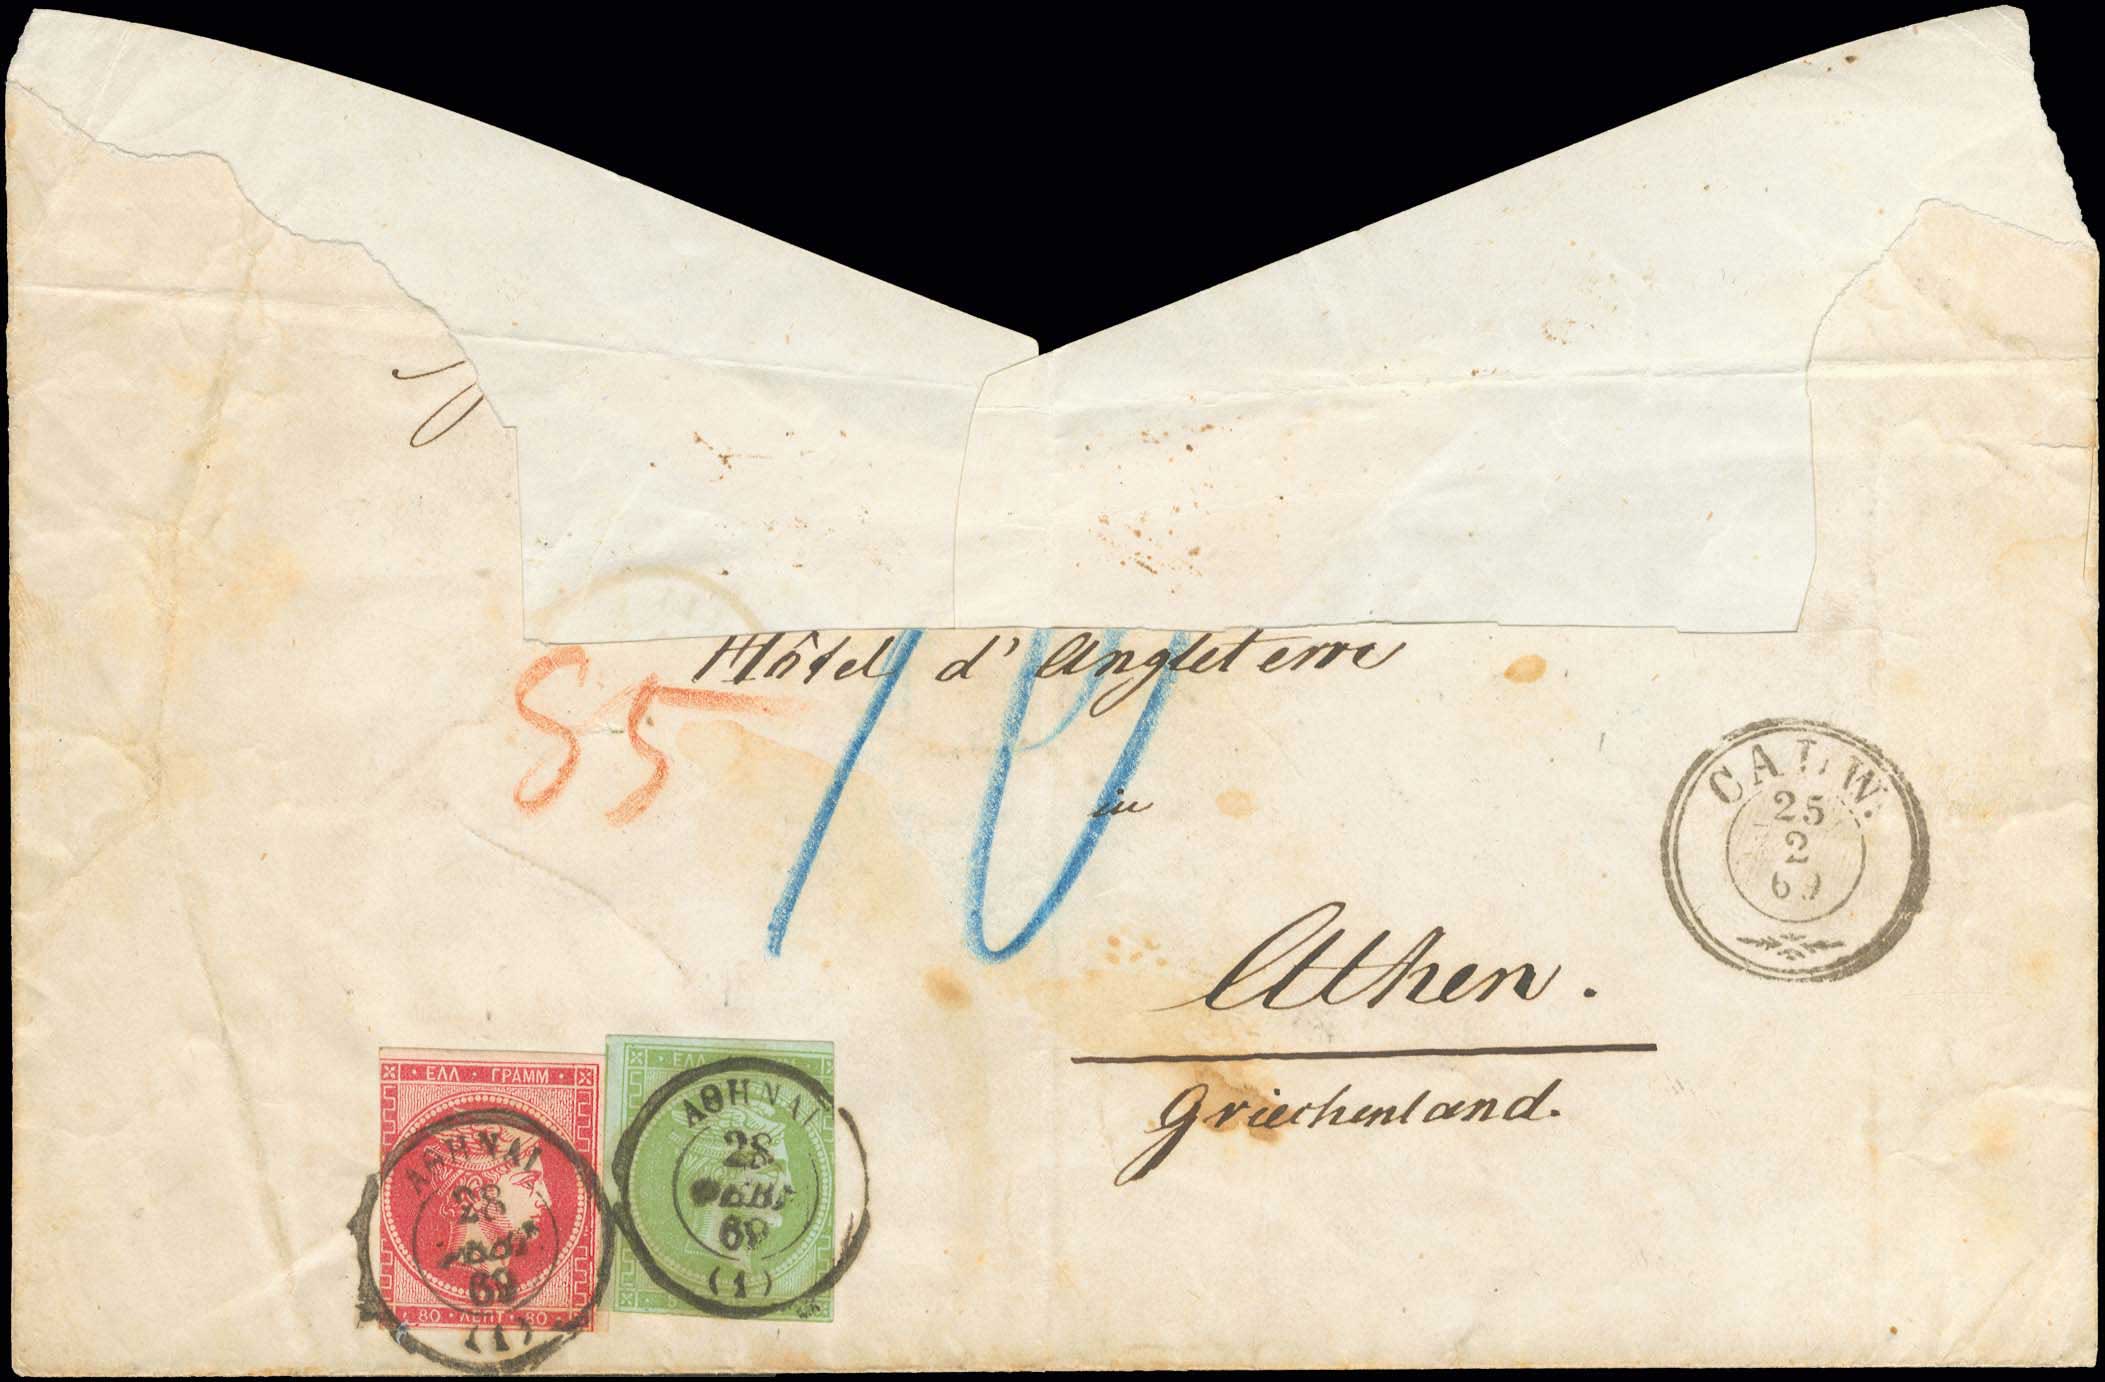 Hôtel d'Angleterre
55
10
in
Athen.
Griechenland.
CALW.
25
2
69
ΕΛΛ · ΓΡΑΜΜ
80 · ΛΕΠΤ · 80
ΑΘΗΝΑΙ
28
ΦΕΒΡ
69
(1)
ΕΛΛ
ΑΘΗΝΑΙ
28
ΦΕΒΡ
69
(1)